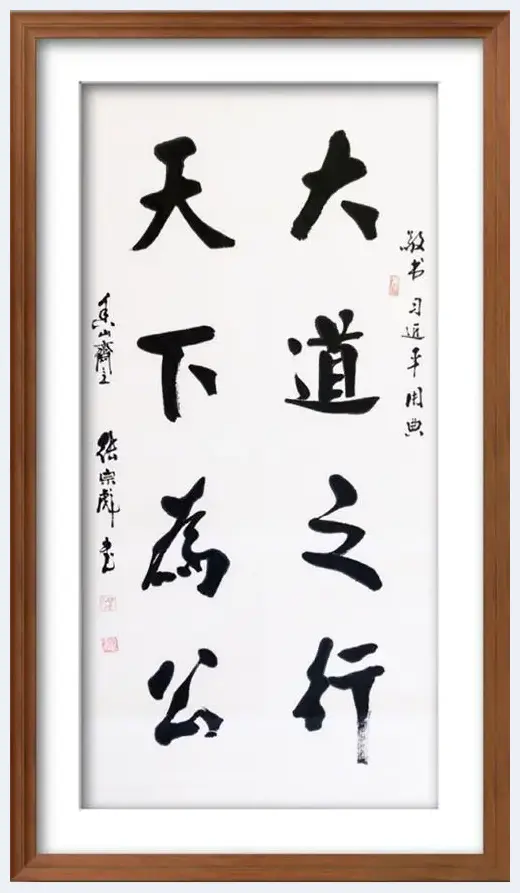 敬书 习近平用典
大道之行
天下為公
泰山齋主 張宗彪 书